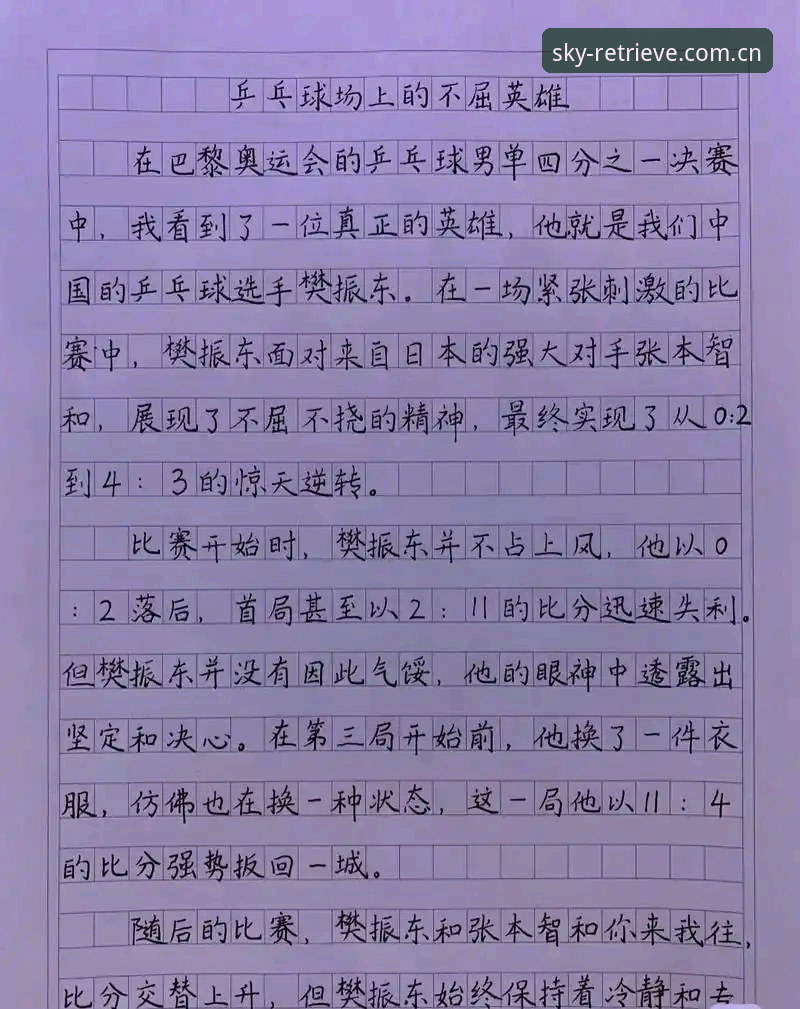 sky-retrieve.com.cn
乒乓球场上的不屈英雄
在巴黎奥运会的乒乓球男单四分之一决赛
中，我看到了一位真正的英雄，他就是我们中
国的乒乓球选手樊振东。在一场紧张刺激的比
赛中，樊振东面对来自日本的强大对手张本智
和，展现了不屈不挠的精神，最终实现了从0:2
到4：3的惊天逆转。
比赛开始时，樊振东并不占上风，他以0
：2落后，首局甚至以2：11的比分迅速失利。
但樊振东并没有因此气馁，他的眼神中透露出
坚定和决心。在第三局开始前，他换了一件衣
服，仿佛也在换一种状态，这一局他以11：4
的比分强势扳回一城。
随后的比赛，樊振东和张本智和你来我往，
比分交替上升，但樊振东始终保持着冷静和专